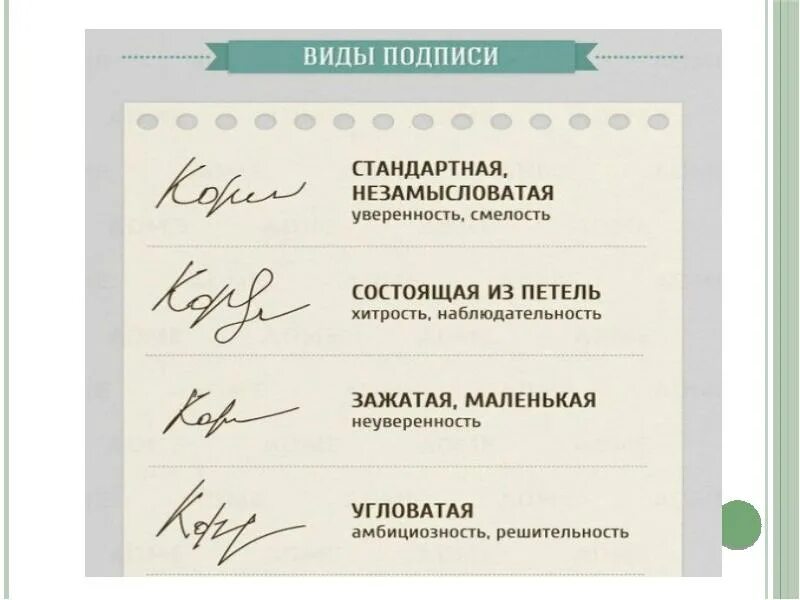 ВИДЫ ПОДПИСИ
СТАНДАРТНАЯ,
НЕЗАМЫСЛОВАТАЯ
уверенность, смелость
СОСТОЯЩАЯ ИЗ ПЕТЕЛЬ
хитрость, наблюдательность
ЗАЖАТАЯ, МАЛЕНЬКАЯ
неуверенность
УГЛОВАТАЯ
амбициозность, решительность